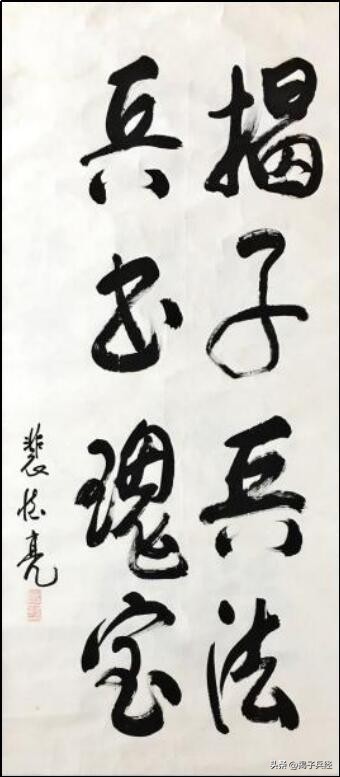 揭子兵法
兵书瑰宝
裴怀亮
头条 @揭子兵经